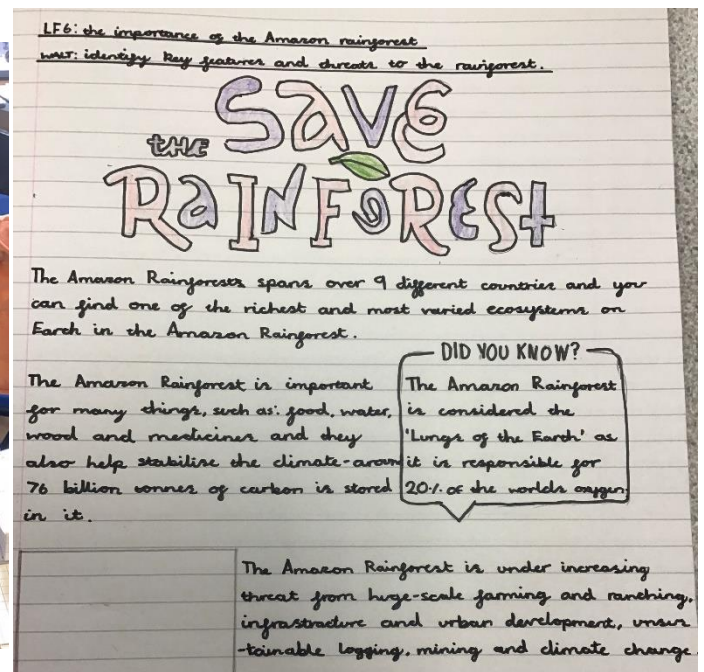 LF6: the importance of the Amazon rainforest
WALT: identify key features and threats to the rainforest.
SAVE
THE
RAINFOREST
The Amazon Rainforests spans over 9 different countries and you
can find one of the richest and most varied ecosystems on
Earth in the Amazon Rainforest.
The Amazon Rainforest is important
for many things, such as: food, water,
wood and medicines and they
also help stabilise the climate-aroun
76 billion tonnes of carbon is stored
in it.
DID YOU KNOW?
The Amazon Rainforest
is considered the
'Lungs of the Earth' as
it is responsible for
20% of the worlds oxygen
The Amazon Rainforest is under increasing
threat from huge-scale farming and ranching,
infrastructure and urban development, unsus
-tainable logging, mining and climate change